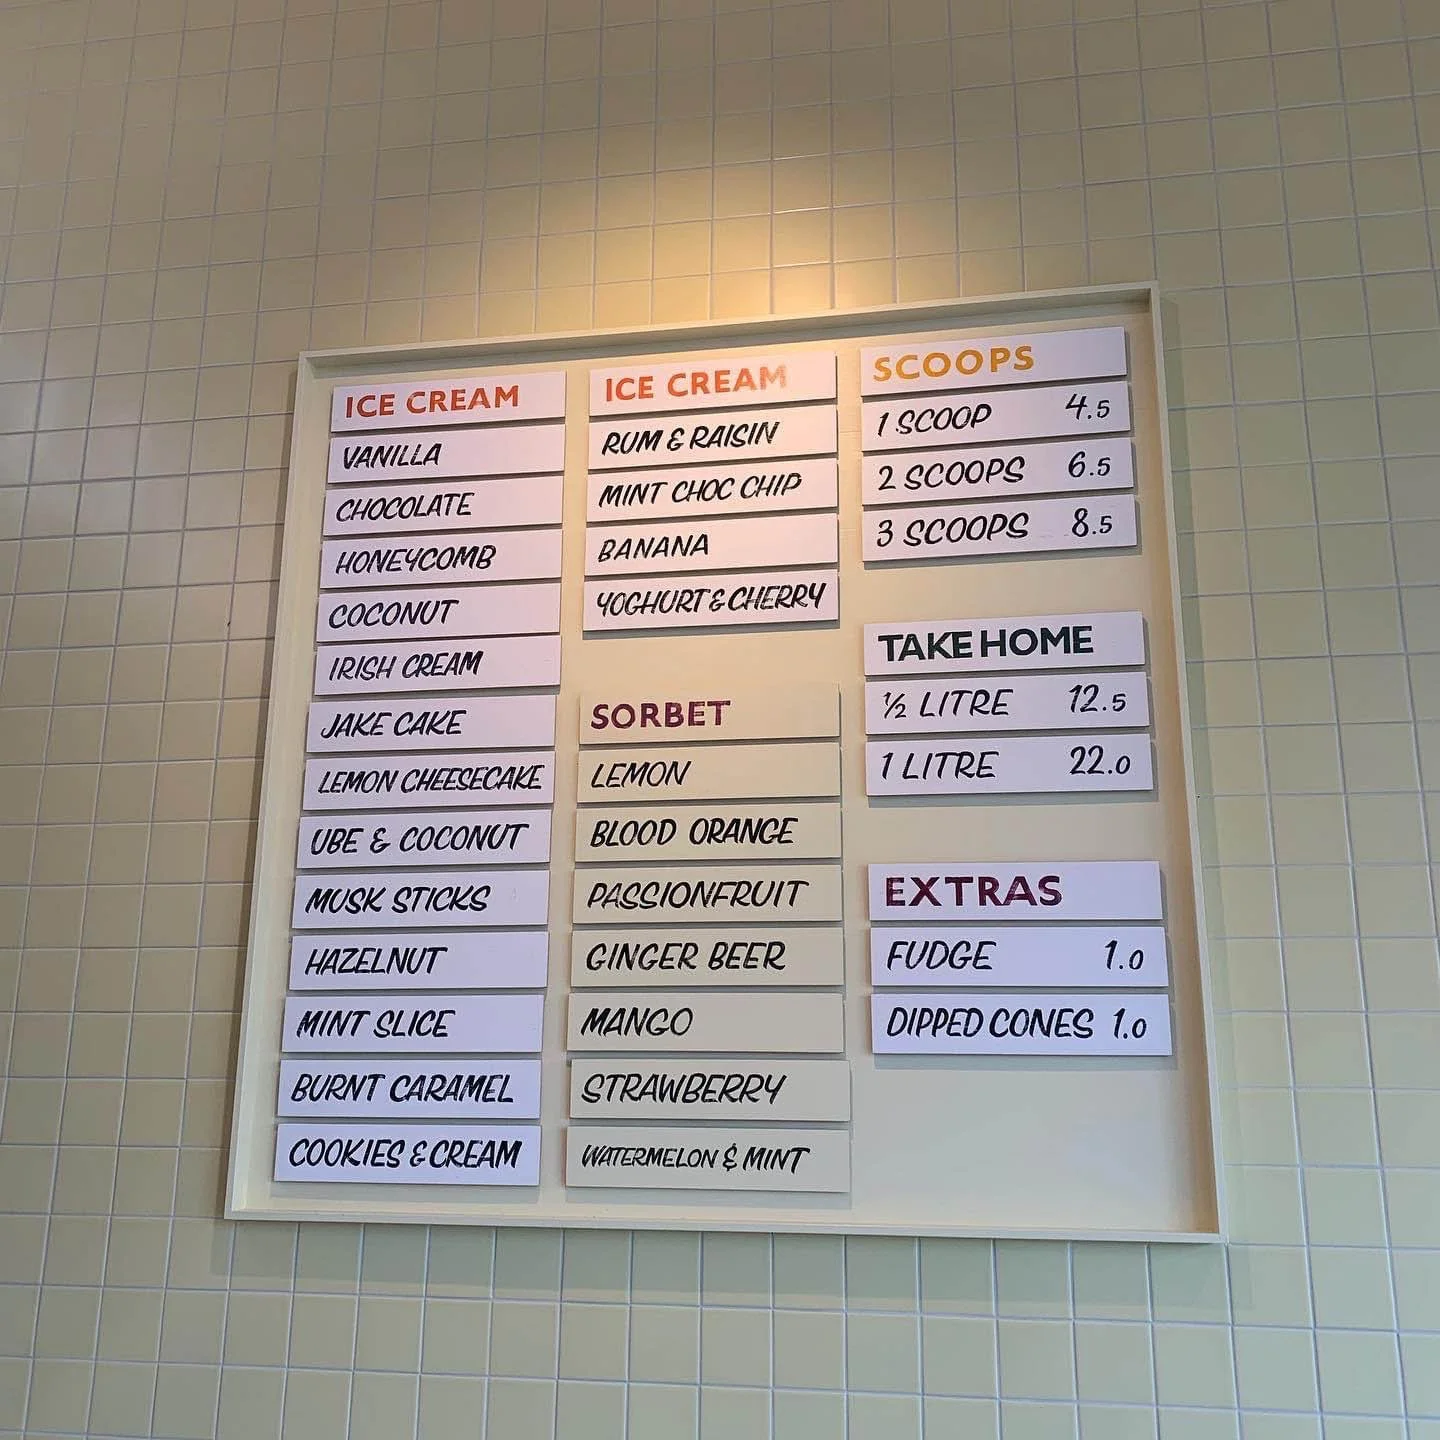 ICE CREAM
VANILLA
CHOCOLATE
HONEYCOMB
COCONUT
IRISH CREAM
JAKE CAKE
LEMON CHEESECAKE
UBE & COCONUT
MUSK STICKS
HAZELNUT
MINT SLICE
BURNT CARAMEL
COOKIES & CREAM
ICE CREAM
RUM & RAISIN
MINT CHOC CHIP
BANANA
YOGHURT & CHERRY
SORBET
LEMON
BLOOD ORANGE
PASSIONFRUIT
GINGER BEER
MANGO
STRAWBERRY
WATERMELON & MINT
SCOOPS
1 SCOOP 4.5
2 SCOOPS 6.5
3 SCOOPS 8.5
TAKE HOME
½ LITRE 12.5
1 LITRE 22.0
EXTRAS
FUDGE 1.0
DIPPED CONES 1.0